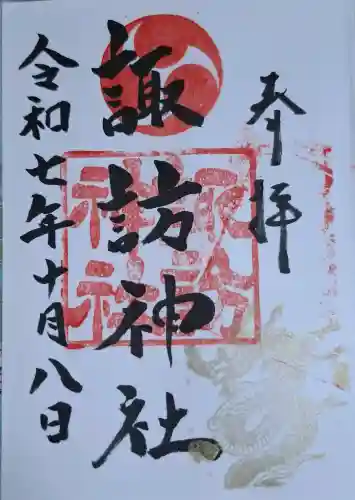 奉拝
諏訪神社
諏訪神社
令和七年十月八日